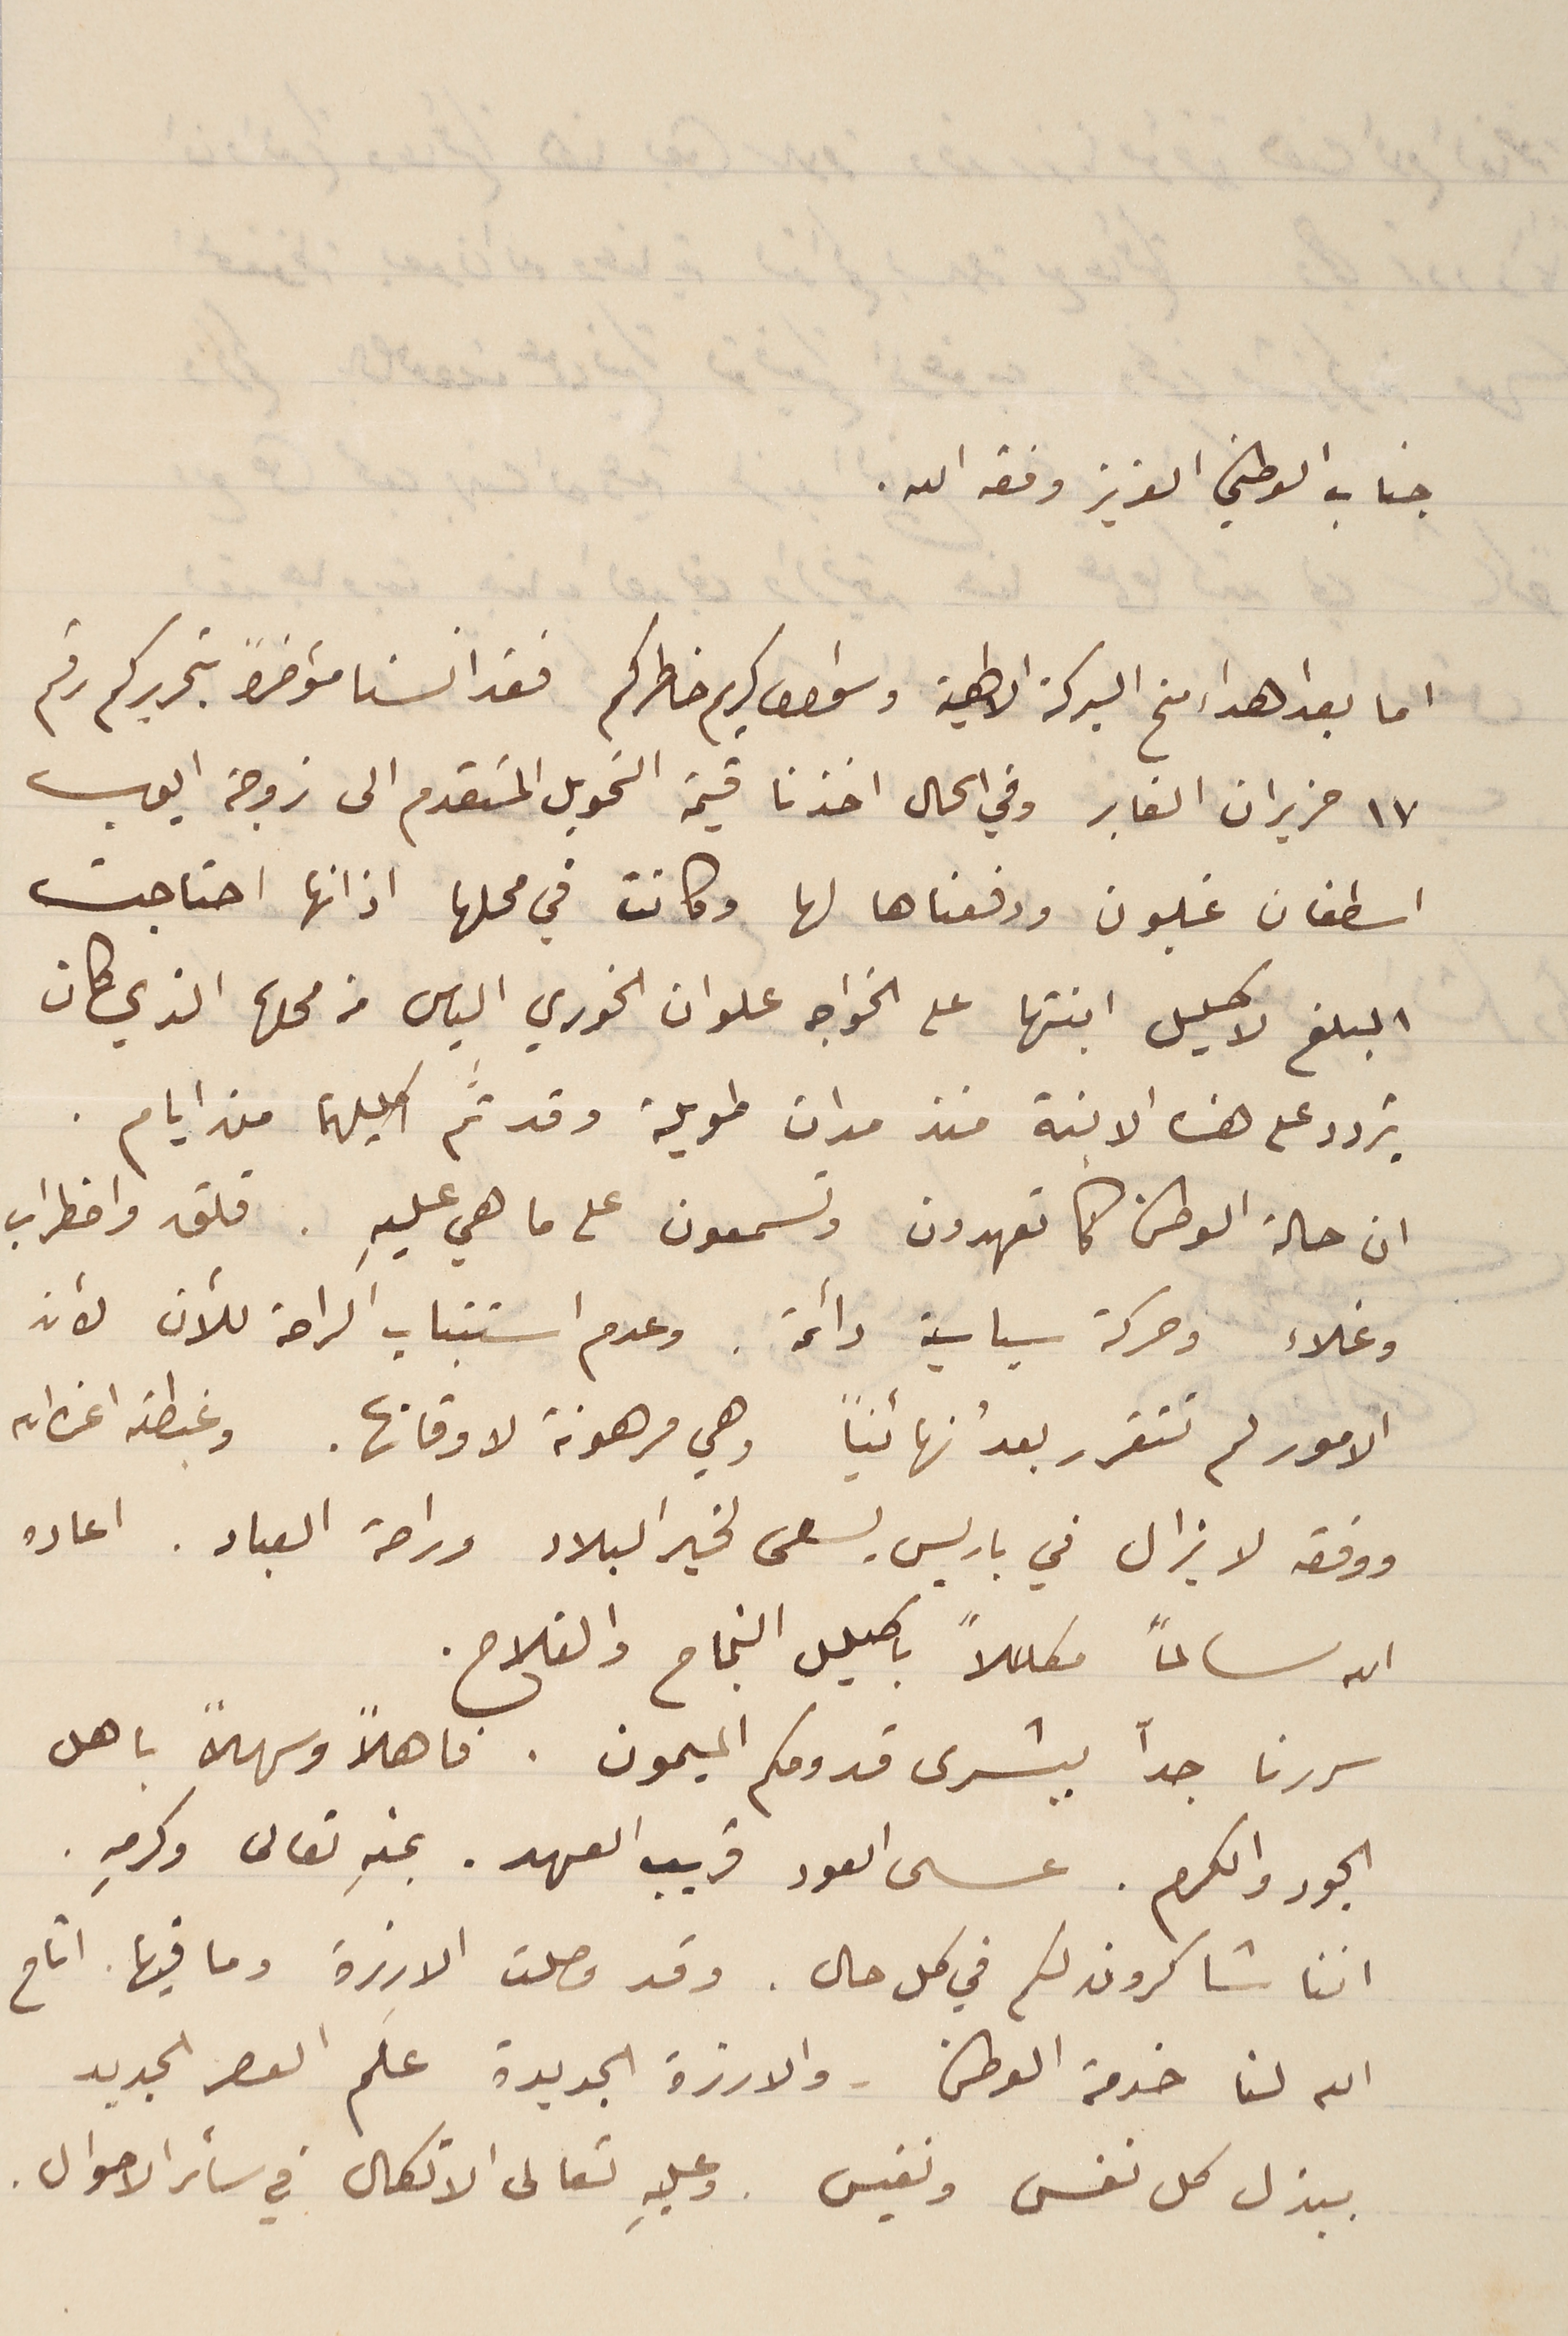 جناب الوطني العزيز وفقه الله.
اما بعد اهداء منح البركة الالهية وسؤال كريم خاطركم فقد انسنا مؤخراً بتحريركم رقم
١٧ حزيران الغابر وفي الحال اخذنا قيمة التحويل المتقدم الى زوجة ايوب
اسطفان غبلون ودفعناها لها وكانت في محلها اذ انها احتاجت
المبلغ لاكليل ابنتها على الخواجه علوان الخوري الياس من محلها الذي كان
يتردد على هذه الابنة منذ مدات طويلة وقد تمَّ اكليلهما منذ ايام .
ان حالة الوطن كما تعهدون وتسمعون على ما هي عليهِ . قلق واضطراب
وغلاء وحركة سياسية دائمة . وعدم استتباب الراحة للآن لأن
الامور لم تتقرر بعدُ نهائياً وهي مرهونة لاوقاتها . وغبطته اعزه الله
ووفقه لا يزال في باريس يسعى لخير البلاد وراحة العباد . اعاده
الله سالماً مكللاً باكليل النجاح والفلاح .
سررنا جداً ببشرى قدومكم الميمون . فاهلاً وسهلاً باهل
الجود والكرم . عسى العود قريب العهد . بمنهِ تعالى وكرمهِ .
اننا شاكرون لكم في كل حال . وقد وصلت الارزة وما فيها . اتاح
الله لنا خدمة الوطن - والارزة الجديدة عَلَم العصر الجديد
ببذل كل نفس ونفيس . وعليهِ تعالى الاتكال في سائر الاحوال .